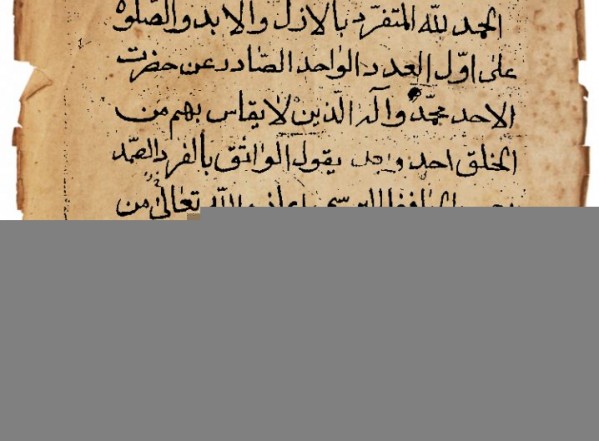 الحمد للّه المتفرّد بالازل والابد والصّلوة
على اوّل العدد الواحد الصّادر عن حضرت
الاحد محمّد وآله الّذين لا يقاس بهم من
الخلق احد وبعد يقول الواثق بالفرد الصّمد
رجب الحافظ البرسى اعاذه اللّه تعالى من